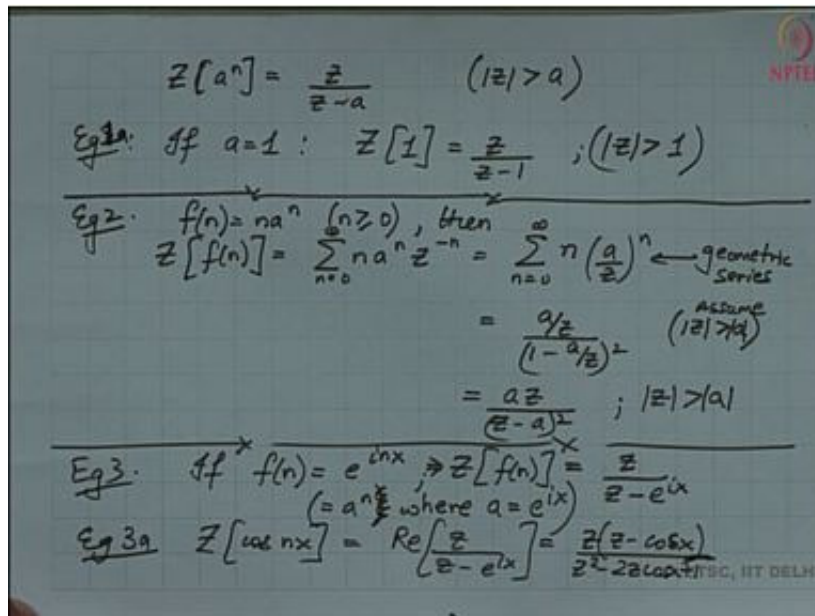 NPTEL
Z[aⁿ] = z/(z-a) (|z| > a)
Eg1a. If a=1 : Z[1] = z/(z-1) ; (|z| > 1)
Eg2. f(n) = naⁿ (n≥0), then
Z[f(n)] = ∑_{n=0}^{∞} n aⁿ z⁻ⁿ = ∑_{n=0}^{∞} n (a/z)ⁿ ← geometric series
= (a/z)/(1 - a/z)² (Assume |z|>|a|)
= az/(z-a)² ; |z| > |a|
Eg3. If f(n) = e^{inx}, ⇒ Z[f(n)] = z/(z - e^{ix})
(= aⁿ where a = e^{ix})
Eg 3a Z[cos nx] = Re[z/(z - e^{ix})] = z(z - cosx)/(z² - 2z cosx+1
TSC, IIT DELH